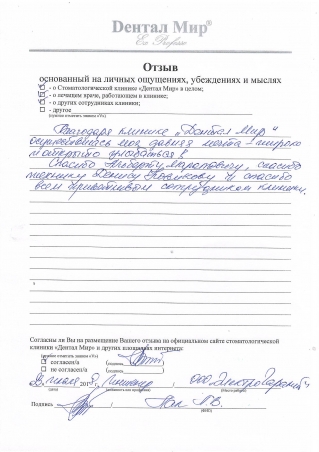 Дентал Мир®
Ex Professo
Отзыв
основанный на личных ощущениях, убеждениях и мыслях
- о Стоматологической клинике «Дентал Мир» в целом;
- о лечащем враче, работающем в клинике;
- о других сотрудниках клиники;
- другое
(нужное отметить знаком «V»)
Благодаря клинике „Дентал Мир"
осуществилась моя давняя мечта - широко
и открыто улыбаться!
Спасибо Альберту спасибо
технику Денису и спасибо
всем сотрудникам клиники.
Согласны ли Вы на размещение Вашего отзыва на официальном сайте стоматологической
клиники «Дентал Мир» и других площадках интернету:
(нужное отметить знаком «V»)
согласен/а
не согласен/а
(дата)
Подпись
(ФИО)